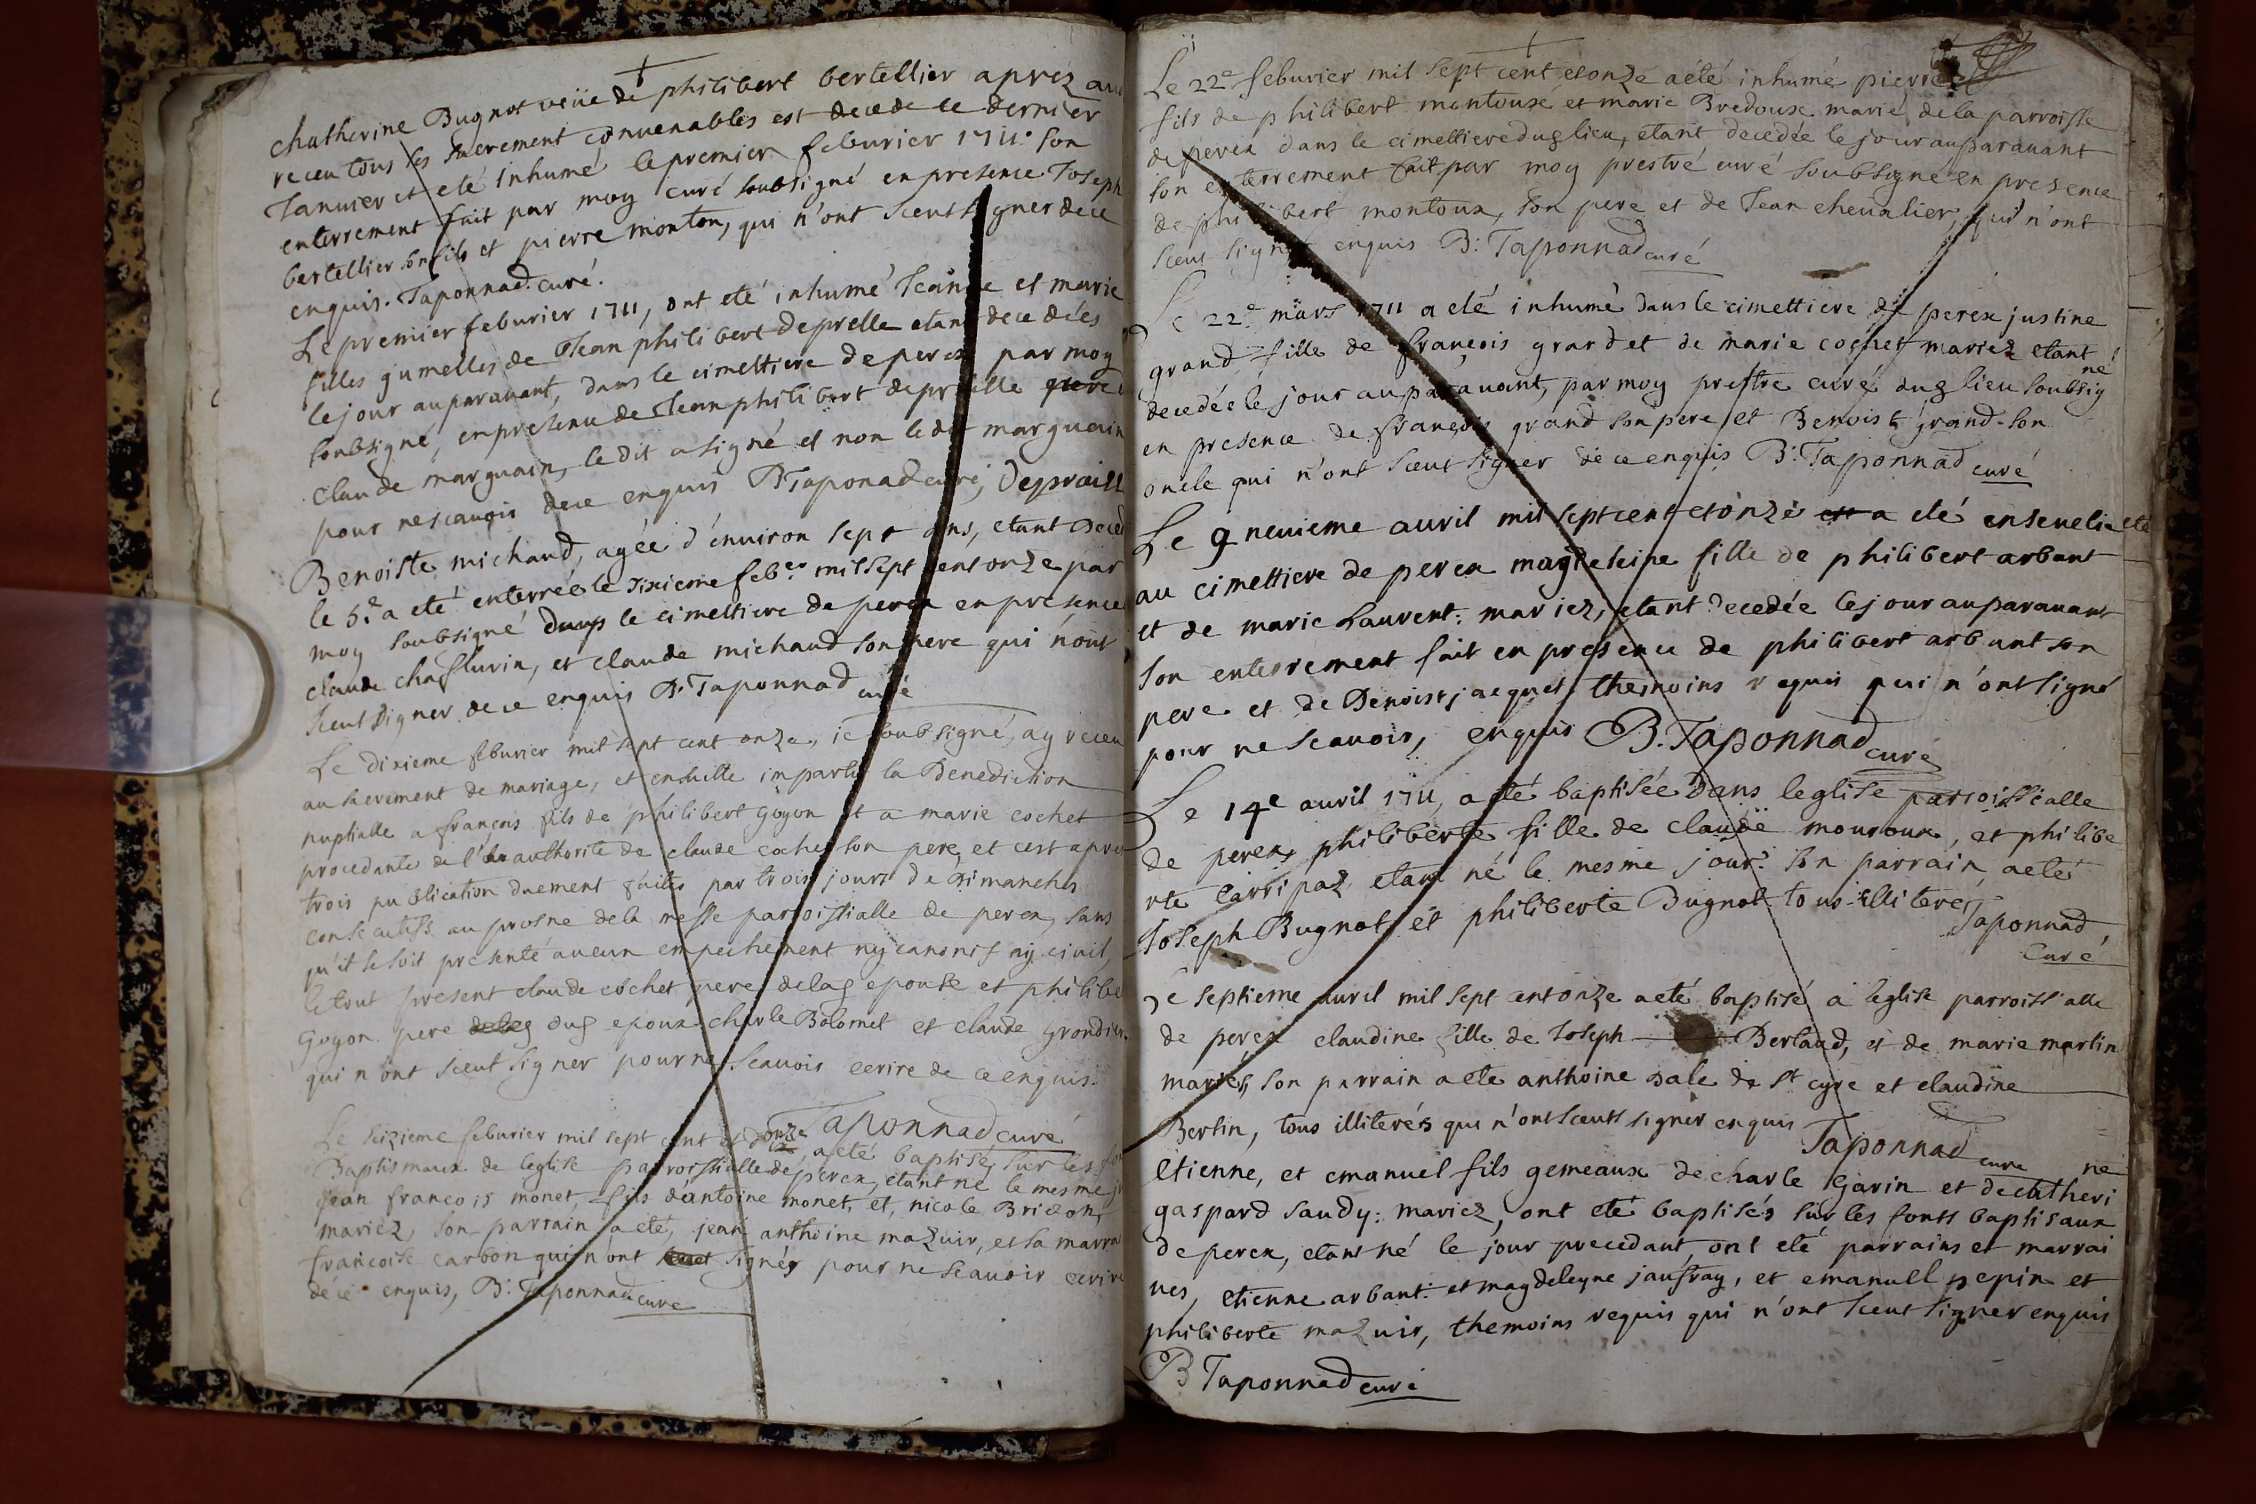 chatherine Bugnot veüe de philibert bertellier aprez au
receu tous les sacrement convenables est decede le dernier
Januier et eté inhumé le premier feburier 1711. son
enterrement fait par moy curé soubsigné en presence Joseph
bertellier son fils et pierre monton, qui n'ont sceut signer de ce
enquis. Taponnad. curé.
Le premier feburier 1711, ont eté inhumé Jeanne et marie
filles gumelles de Jean philibert deprelle etant decedées
le jour auparauant, dans le cimettiere de perex par moy
soubsigné, en presence de Jean philibert
claude marguain, le dit a signé et non le dit marguain
pour ne scauoir de ce enquis B Taponad curé, Depraill
Benoiste michaud, agée d'enuiron sept ans, etant deced
le 5e a eté enterrée le sixieme feber mil sept cent onze par
moy soubsigné dans le cimettiere de perex en presence
claude chaffurin, et claude michaud son pere qui n'ont
sceut signer de ce enquis B. Taponnad curé
Le dixieme feburier mil sept cent onze, ie soubsigné, ay receu
au sacrement de mariage, et ensuitte imparti la Benediction
nuptialle a françois fils de philibert Goyon et a marie cochet
procedante de l'authorité de claude cochet son pere, et c'est apres
trois publication duement faites par trois jours de Dimanches
consecutifs au prosne de la messe parroissialle de perex, sans
qu'il se soit presenté aucun empechement ny canonif ny ciuil,
le tout present claude cochet pere de lad epouse et philibe
Goyon pere dud epoux charle Bolomet et claude Grondin
qui n'ont sceut signer pour ne scauoir ecrire de ce enquis.
Taponnad curé
Le seizieme feburier mil sept cent et onze, a eté baptisé, sur les fon
Baptismaux de leglise parroissialle de perex, etant né le mesme jo
Jean francois monet, fils d'antoine monet, et, nicole Bridon
mariez, son parrain a eté, jean anthoine mazuir, et sa marra
francoise carbon qui n'ont signés pour ne scauoir ecrire
de ce enquis, B. Taponnad curé
Le 22e feburier mil sept cent et onze a eté inhumé pierre
fils de philibert montouxé et marie Bredoux marié de la parroisse
de perex dans le cimettiere dud lieu, etant decedée le jour auparauant
son enterrement fait par moy prestré curé soubsigné en presence
de philibert montoux, son pere et de Jean cheualier, qui n'ont
sceut signer enquis B: Taponnad curé
Le 22e mars 1711 a eté inhumé dans le cimettiere de perex justine
grand, fille de françois grard et de marie cochet mariez etant
decedée le jour auparauant, par moy prestre curé dud lieu soubsigné
en presence de françois grand son pere et Benoist grand son
oncle qui n'ont sceut signer de ce enquis B: Taponnad curé
Le 9 neuieme auril mil sept cent et onze a eté enseuelie
au cimettiere de perex magdeleine fille de philibert arbant
et de marie Laurent: mariez, etant decedée le jour auparauant
son enterrement fait en presence de philibert arbant son
pere et de Benoist jacquet themoins requis qui n'ont signé
pour ne scauoir, enquis B. Taponnad curé
Le 14e auril 1711, a eté baptisée dans leglise parroissialle
de perex, philiberte fille de claude mouroux, et philibe
rte Carripaz, etant né le mesme jour son parrain, a eté
Joseph Bugnot, et philiberte Bugnot tous illiteres
Taponnad
Curé
Le septieme auril mil sept cent onze a eté baptisé a leglise parroissialle
de perex claudine fille de Joseph Bertaud, et de marie martin
mariés, son parrain a eté anthoine Dale de St cyre et claudine
Bertin, tous illiterés qui n'ont sceuts signer enquis
Taponnad curé
Etienne, et emanuel fils gemeaux de charle Garin et de catherine
gaspard saudy: mariez, ont eté baptisés sur les fonts baptisaux
de perex, etant né le jour precedant, ont eté parrains et marrai
nes, etienne arbant. et magdeleyne jaufray, et emanuel pepin et
philiberte mazuir, themoins requis qui n'ont sceut signer enquis
B Taponnad curé